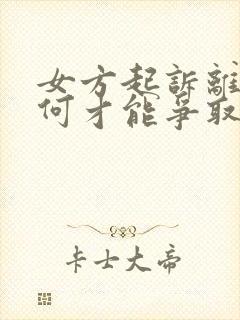 女方起訴離
何才能爭取
卡士大帝